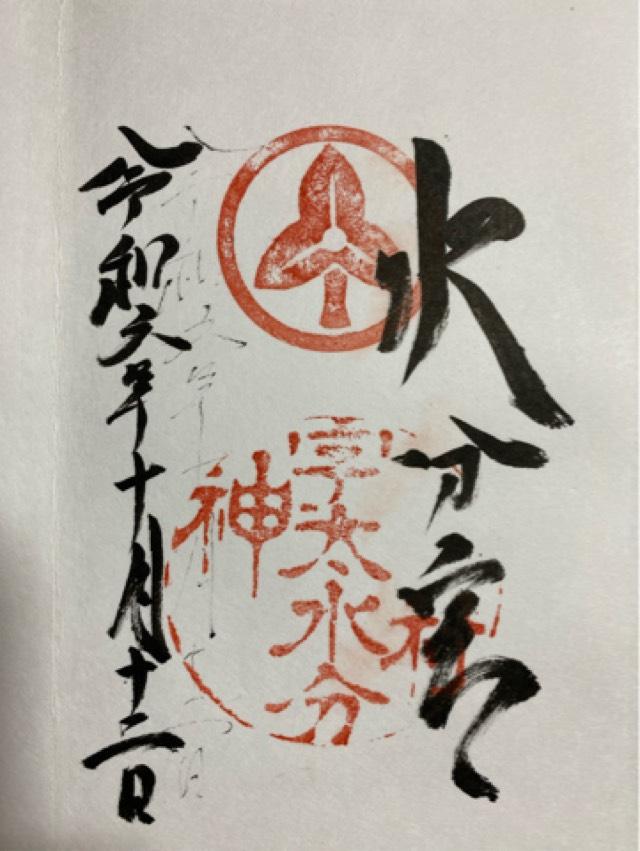 水分宮
宇太水分
神社
令和六年十月十二日